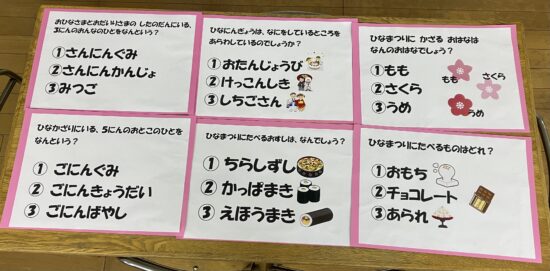 おひなさまとおだいりさまの したのだんにいる、
3にんのおんなのひとをなんという？
①さんにんぐみ
②さんにんかんじょ
③みつご
ひなにんぎょうは、なにをしているところを
あらわしているのでしょうか？
①おたんじょうび
②けっこんしき
③しちごさん
ひなまつりに かざる おはなは
なんのおはなでしょう？
①もも
②さくら
③うめ
もも
さくら
うめ
ひなかざりにいる、5にんのおとこのひとを
なんという？
① ごにんぐみ
② ごにんきょうだい
③ ごにんばやし
ひなまつりにたべるおすしは、なんでしょう？
① ちらしずし
② かっぱまき
③ えほうまき
ひなまつりにたべるものはどれ？
①おもち
②チョコレート
③あられ